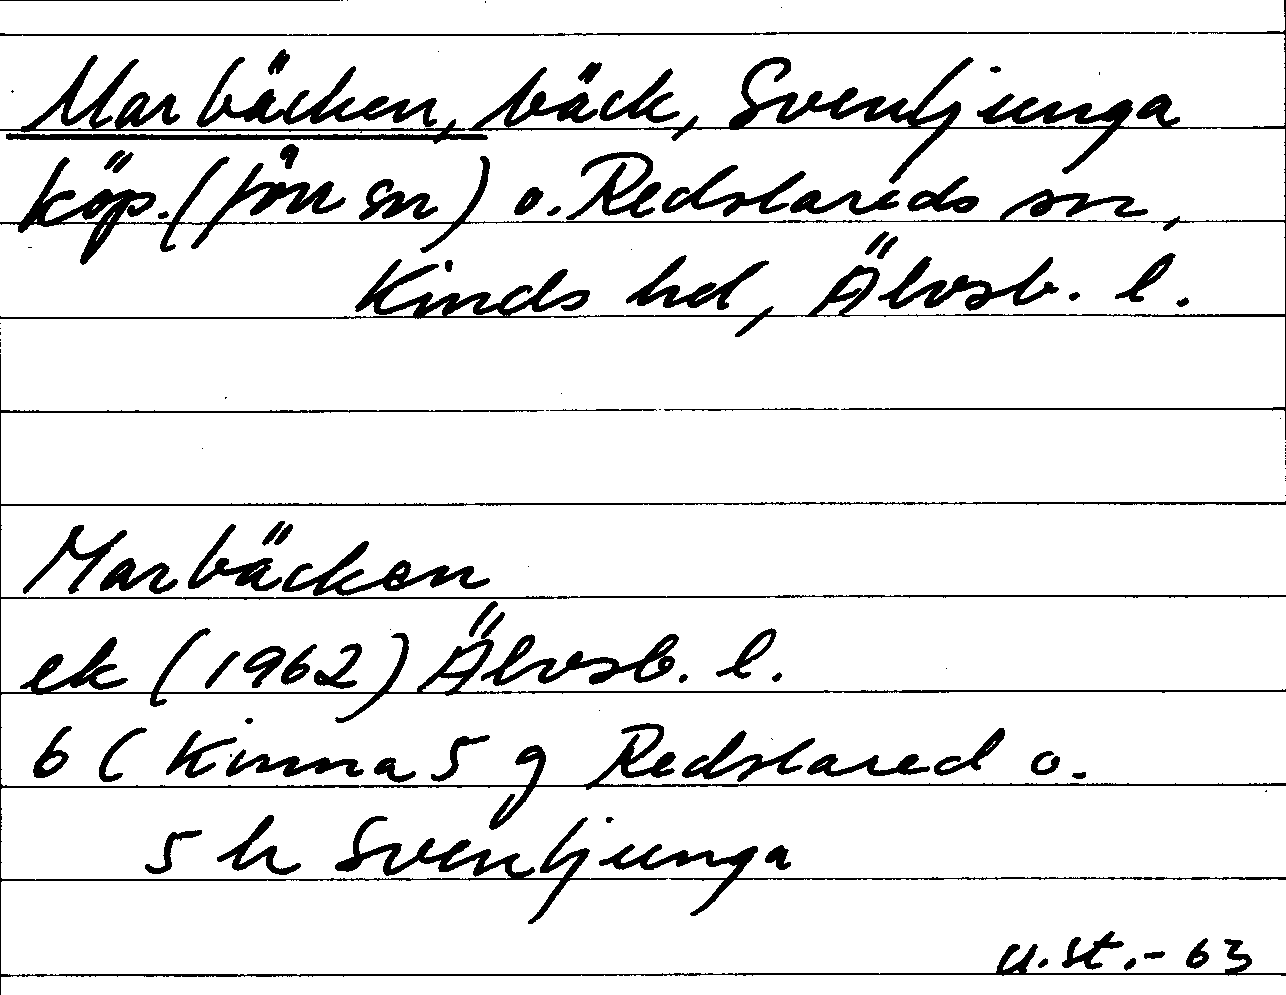 Marbäcken, bäck, Svenljunga
köp. (förr sn) o. Redslareds sn,
Kinds hd, Älvsb. l.
Marbäcken
ek (1962) Älvsb. l.
6 ( Kinna 5 g Redslared o.
5 h Svenljunga
U.St. - 63